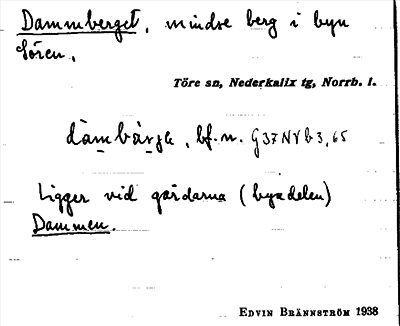 Dammberget, mindre berg i byn
Sören.
Töre sn, Nederkalix tg, Norrb. l.
bf. n. G37NVb3,65
Ligger vid gårdarna (bydelen)
Dammen.
EDVIN BRÄNNSTRÖM 1938